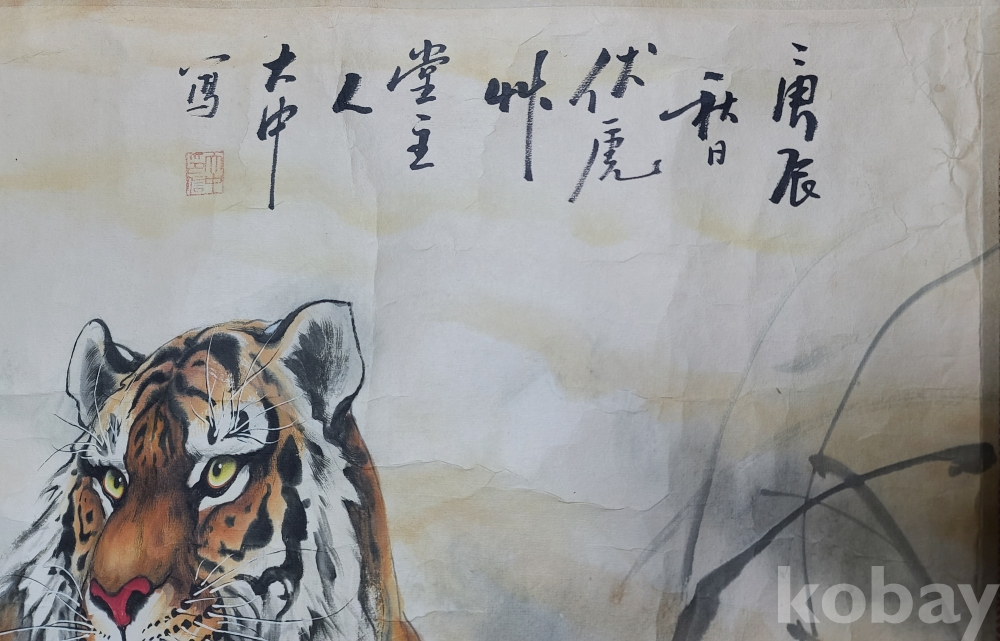 庚辰
秋日
伏虎
艸
堂主
人
大中
写
kobay